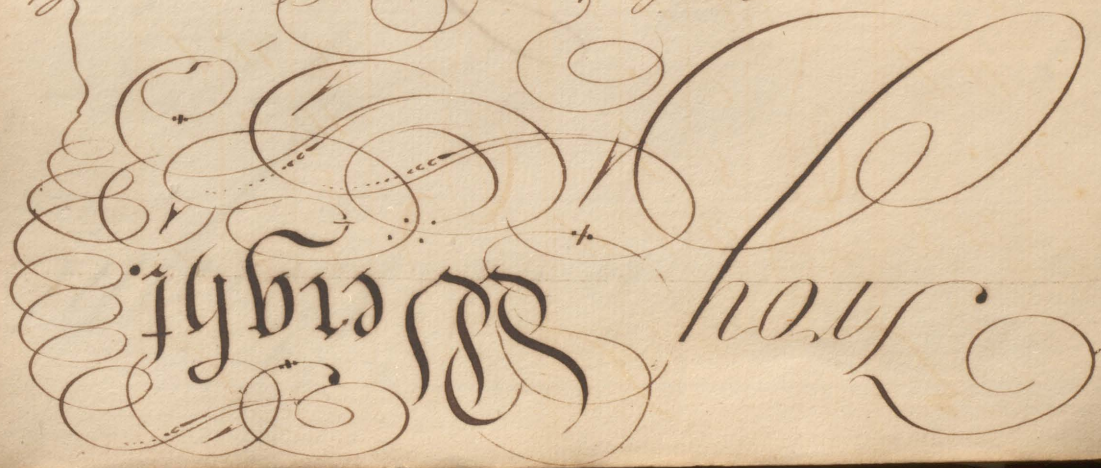 Troy Weight.